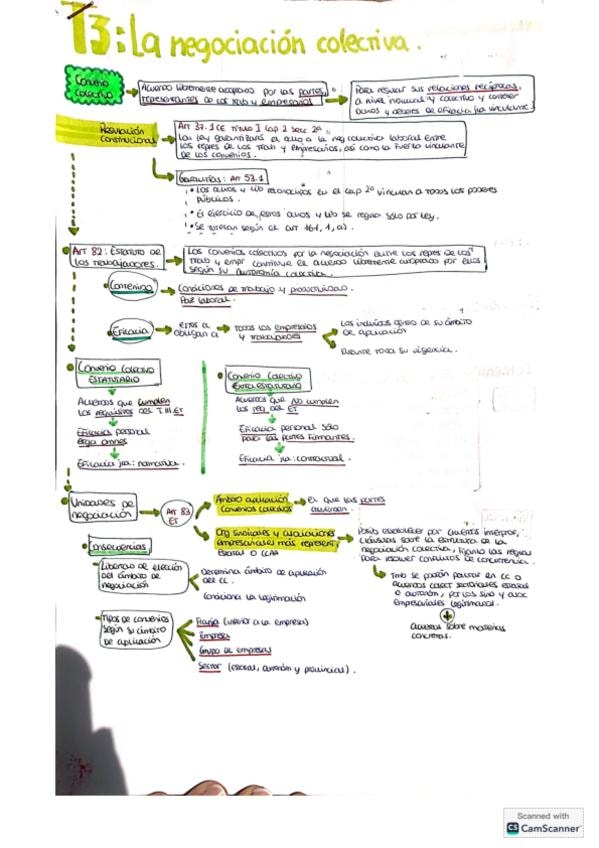 T3: La negociación colectiva.
Convenio
colectivo
Acuerdo libremente adoptado por las partes,
representantes de los trab y empresarios
Para regular sus relaciones recíprocas,
a nivel individual y colectivo y contener
dchos y deberes de eficacia jca vinculante.
Regulación
constitucional
Art 37.1 CE Título I Cap 2 Secc 2ª
La ley garantizará el dcho a la neg colectiva laboral entre
los repres de los trab y empresarios, así como la fuerza vinculante
de los convenios.
Garantías: Art 53.1
• Los dchos y lib reconocidos en el cap 2º vinculan a todos los poderes
públicos.
• El ejercicio de estos dchos y lib se regula sólo por ley.
• Se tutelan según el art 161, 1, a).
Art 82: Estatuto de
los trabajadores.
Los convenios colectivos por la negociación entre los repres de los
trab y empr constituye el acuerdo libremente adoptado por ellos
según su autonomía colectiva.
Contenido
Condiciones de trabajo y productividad.
Paz laboral.
Eficacia
obligan a
todos los empresarios
y trabajadores
Los incluidos dentro de su ámbito
de aplicación
Durante toda su vigencia.
Convenio colectivo
ESTATUTARIO
Acuerdos que cumplen
los requisitos del T III ET
Eficacia personal
erga omnes
Eficacia jca: normativa.
Convenio colectivo
EXTRAESTATUTARIO
Acuerdos que No cumplen
los req del ET
Eficacia personal sólo
para las partes firmantes.
Eficacia jca: contractual.
Unidades de
negociación
Art 83
ET
Ámbito aplicación
convenios colectivos
El que las partes
acuerden.
Org sindicales y asociaciones
empresariales más represent,
estatal o CCAA
Podrán establecer por acuerdos interprof,
cláusulas sobre la estructura de la
negociación colectiva, fijando las reglas
para resolver conflictos de concurrencia.
Tmb se podrán pactar en CC o
acuerdos colect sectoriales estatales
o autonóm, por los sind y asoc
empresariales legitimados.
+
acuerdos sobre materias
concretas.
Consecuencias
Libertad de elección
del ámbito de
negociación
Determina ámbito de aplicación
del CC.
Condiciona la legitimación
Tipos de convenios
según su ámbito
de aplicación
Franja (inferior a la empresa)
Empresa
Grupo de empresas
Sector (estatal, autonóm y provincias).
Scanned with
CS CamScanner